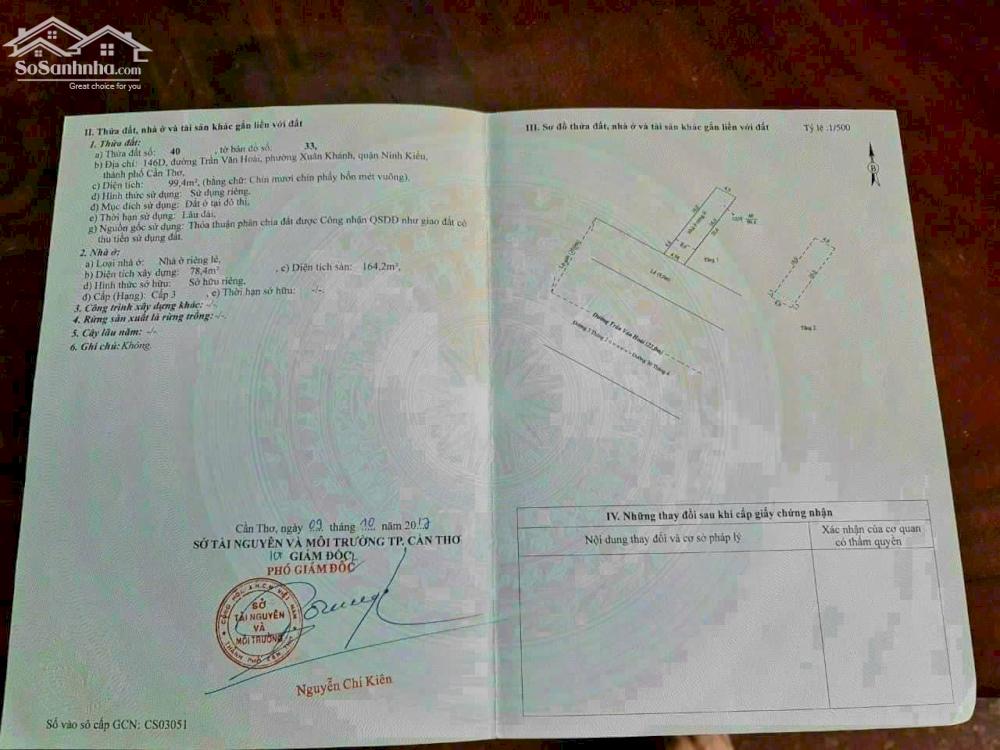 SoSanhnha.com
Great choice for you
II. Thửa đất, nhà ở và tài sản khác gắn liền với đất
1. Thửa đất:
a) Thửa đất số: 40 , tờ bản đồ số: 33,
b) Địa chỉ: 146D, đường Trần Văn Hoài, phường Xuân Khánh, quận Ninh Kiều,
thành phố Cần Thơ,
c) Diện tích: 99,4m², (bằng chữ: Chín mươi chín phẩy bốn mét vuông),
d) Hình thức sử dụng: Sử dụng riêng,
đ) Mục đích sử dụng: Đất ở tại đô thị,
e) Thời hạn sử dụng: Lâu dài,
g) Nguồn gốc sử dụng: Thỏa thuận phân chia đất được Công nhận QSDĐ như giao đất có
thu tiền sử dụng đất.
2. Nhà ở:
a) Loại nhà ở: Nhà ở riêng lẻ,
b) Diện tích xây dựng: 78,4m² , c) Diện tích sàn: 164,2m²,
d) Hình thức sở hữu: Sở hữu riêng,
đ) Cấp (Hạng): Cấp 3 , e) Thời hạn sở hữu: -/-.
3. Công trình xây dựng khác: -/-
4. Rừng sản xuất là rừng trồng: -/-.
5. Cây lâu năm: -/-
6. Ghi chú: Không.
Cần Thơ, ngày 09 tháng 10 năm 2017
SỞ TÀI NGUYÊN VÀ MÔI TRƯỜNG TP. CẦN THƠ
GIÁM ĐỐC
PHÓ GIÁM ĐỐC
CỘNG HÒA X.H.C.N VIỆT NAM
SỞ
TÀI NGUYÊN
VÀ
MÔI TRƯỜNG
THÀNH PHỐ CẦN THƠ
Nguyễn Chí Kiên
Số vào sổ cấp GCN: CS03051
III. Sơ đồ thửa đất, nhà ở và tài sản khác gắn liền với đất
Tỷ lệ :1/500
B
Tầng 1
Lộ (5,0m)
Tầng 2
Đường Trần Văn Hoài (22,0m)
Đường 3 Tháng 2 Đường 30 Tháng 4
IV. Những thay đổi sau khi cấp giấy chứng nhận
Nội dung thay đổi và cơ sở pháp lý
Xác nhận của cơ quan
có thẩm quyền